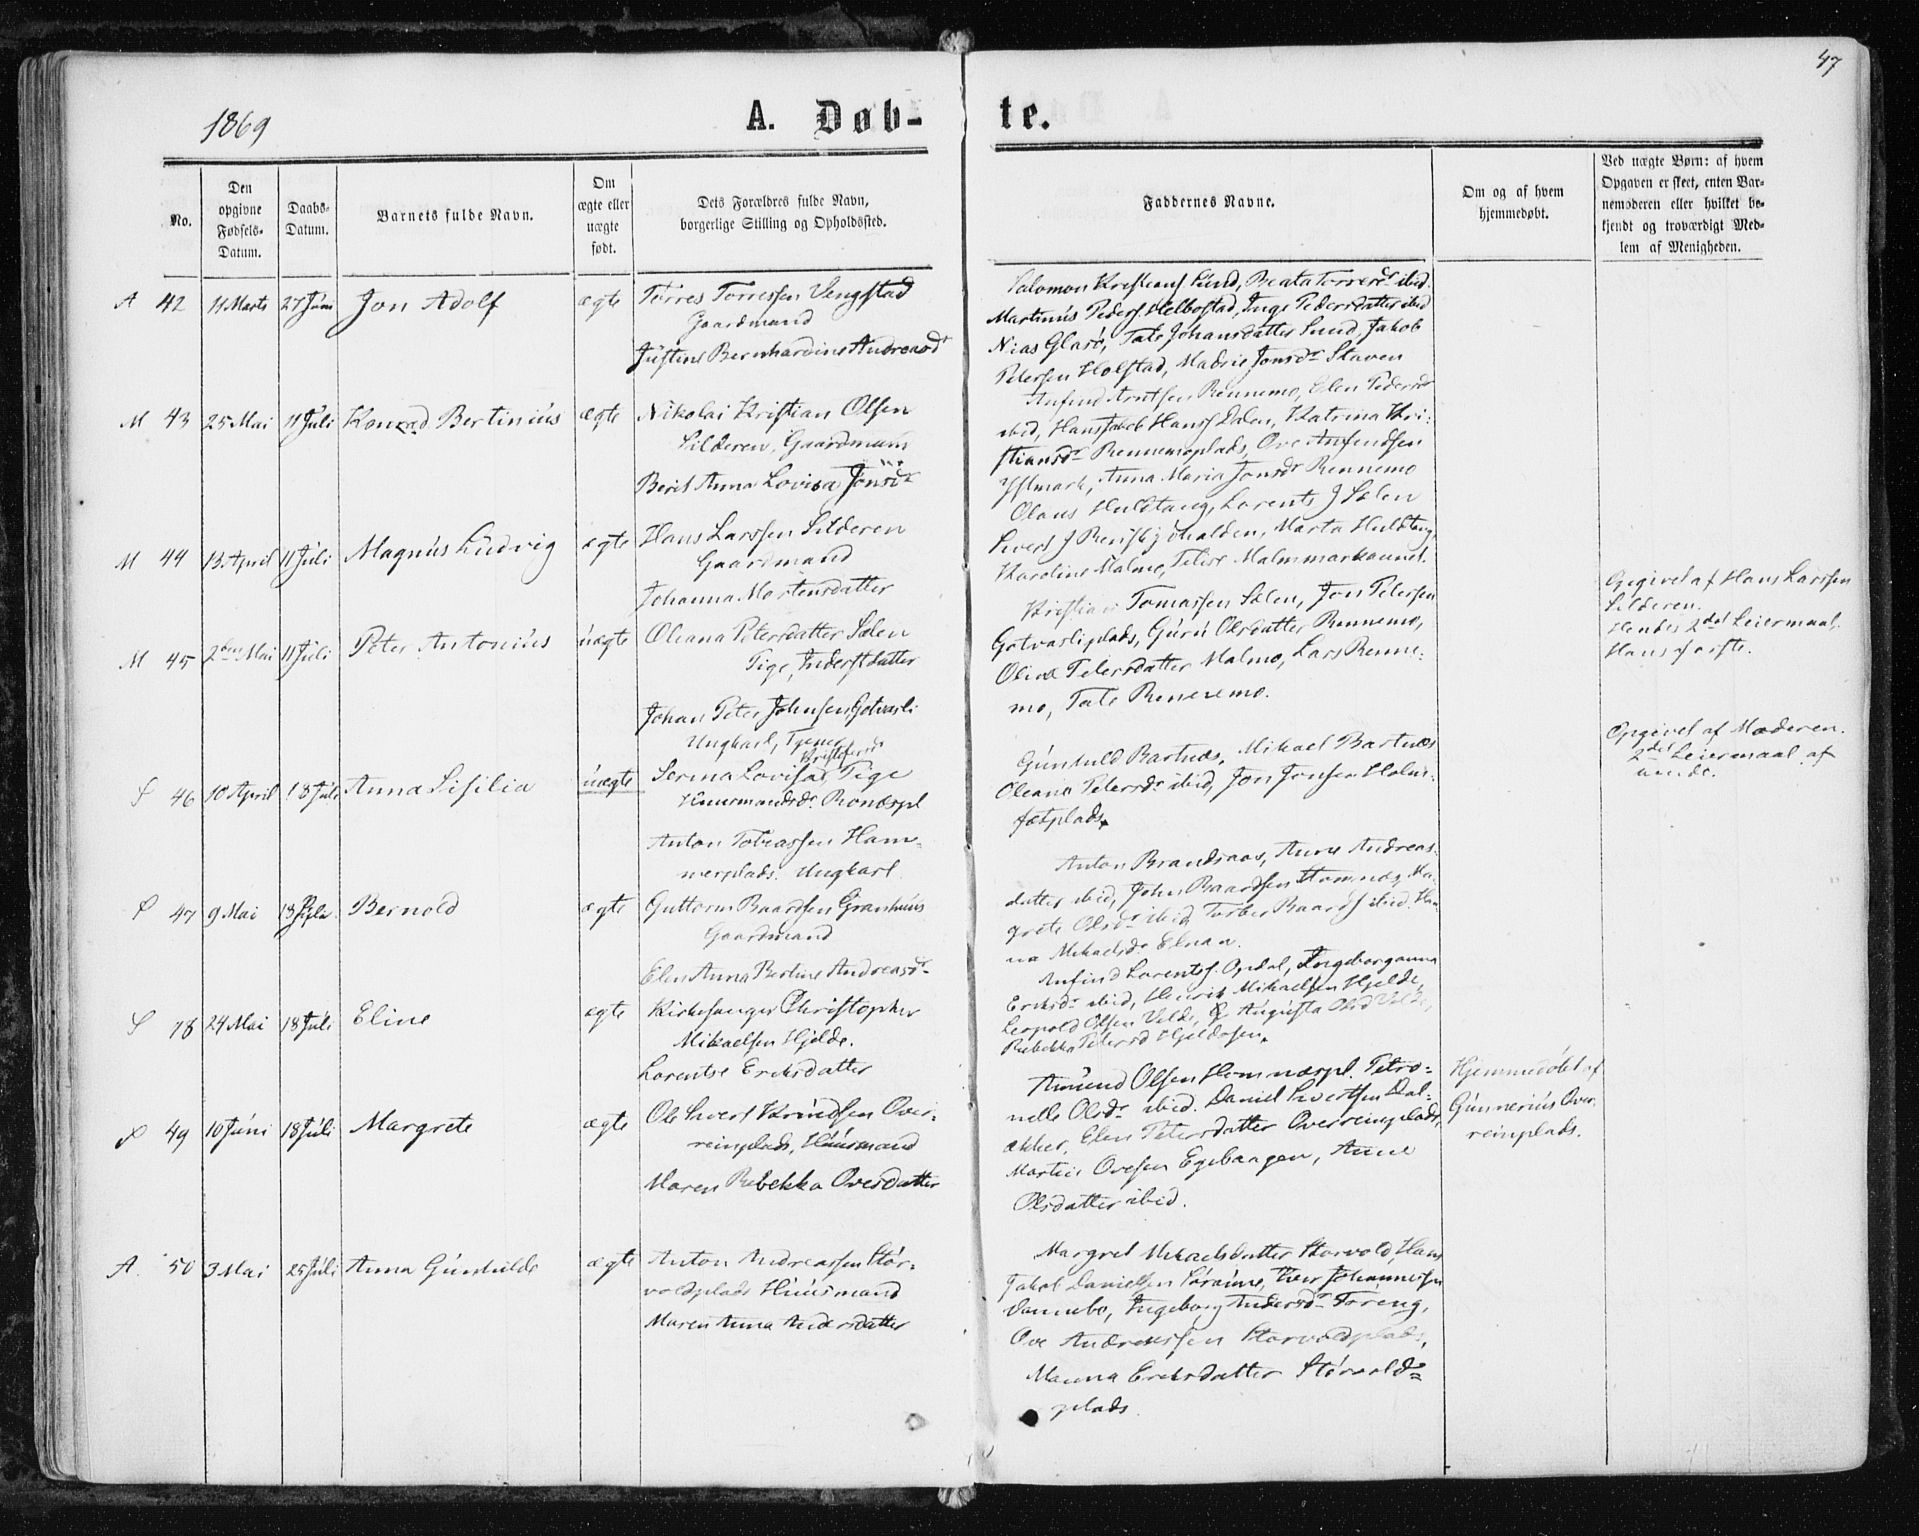 47
1869
A. Døb-
te.
No.
Den
opgivne
Fødsels-
Datum.
Daabs-
Datum.
Barnets fulde Navn.
Om
ægte eller
uægte
født.
Dets Forældres fulde Navn,
borgerlige Stilling og Opholdssted.
Faddernes Navne.
Om og af hvem
hjemmedøbt.
Ved uægte Børn: af hvem
Opgaven er skeet, enten Bar-
nemoderen eller hvilket be-
kjendt og troværdigt Med-
lem af Menigheden.
A 42 11 Marts 27 Juni Jon Adolf ægte Torres Torressen Vengstad
Gaardmand
Justine Bernhardine Andreasdr
Salomon Kristians Sund, Beata Torresdr ibid.
Martinus Peders Helbostad, Inge Pedersdatter ibid
Nias Glasø, Tale Johansdatter Sund, Jakob
Petersen Holstad, Jonsdr Staven
M 43 25 Mai 11 Juli Konrad Bertinius ægte Nikolai Kristian Olsen
Silderen, Gaardmand
Berit Anna Lovisa Jonsdr
Anfind Arntsen Rennemo, Elen Pedersdr
ibid, Hans Jakob Hanss Dalen, Katrina Kri-
stiansdr Rennemoplads, Ove Anfindsen
Ystmark, Anna Maria Jonsdr Rennemo
M 44 13 April 11 Juli Magnus Ludvig ægte Hans Larssen Silderen
Gaardmand
Johanna Mortensdatter
Olaus Huldtang, Lorents J Sælen
Sivert J Marta Huldtang
Karoline Malmo, Malmmarkaunet.
M 45 2den Mai 11 Juli Peter Antonius uægte Oleana Petersdatter Sælen
Pige, Inderst Datter
Johan Peter Johnsen Gotvasli
Ungkarl, Tjener
Kristian Tomassen Sælen, Jon Petersen
Gotvasliplads, Guru Olsdatter Rennemo,
Olina Petersdatter Malmo, Lars Renne-
mo, Tale Rennemo.
Opgivet af Hans Larssen
Silderen.
Hendes 2det Leiermaal.
Hans første.
S 46 10 April 18 Juli Anna Sisilia uægte Serina Lovisa Kristofersdr Pige
Huusmandsdr.
Anton Tobiassen Ham-
merplads. Ungkarl.
Gunhild Bartnæs, Mikael Bartnæs
Oleana Petersdr ibid, Jon Jonsen Holm-
sætplads.
Opgivet af Moderen.
2det Leiermaal af
S 47 9 Mai 18 Juli Bernold ægte Guttorm Baardsen Granhuus
Gaardmand
Elen Anna Bertine Andreasdr
Anton Brandsaas, Anne Andreas-
datter ibid, John Baardsen Ma-
grete Olsdr ibid, Torber Baards ibid. Han-
na Mikaelsdr Elnan.
S 48 24 Mai 18 Juli Eline ægte Kirkesanger Christopher
Mikaelsen Hjelde.
Lorentse Eriksdatter
Anfind Lorents. Opdal, Ingeborganna
Eriksdr ibid, Henrik Mikaelsen Hjelde,
Leopold Olsen Velde, & Augusta Olsd Velde,
Rebekka Petersd Hjeldesen.
S 49 10 Juni 18 Juli Margrete ægte Ole Sivert Knudsen Over-
reinplads, Huusmand
Maren Rebekka Oversdatter
Amund Olsen Petro-
nelle Olsdr ibid. Daniel Sivertsen Dal-
akker, Elen Petersdatter Overreinplads,
Martin Ovesen Anne
Olsdatter ibid.
Hjemmedøbt af
Gunnerius Over-
reinplads.
A. 50 3 Mai 25 Juli Anna Gunhilde ægte Anton Andreassen Stor-
voldplads Huusmand
Maren Anna Andersdatter
Margret Mikaelsdatter Storvold, Hans
Jakob Danielsen Iver Johannesen
Vannebo, Ingeborg Andersdr
Ove Andreassen Storvoldplads,
Eriksdatter Storvold-
plads.